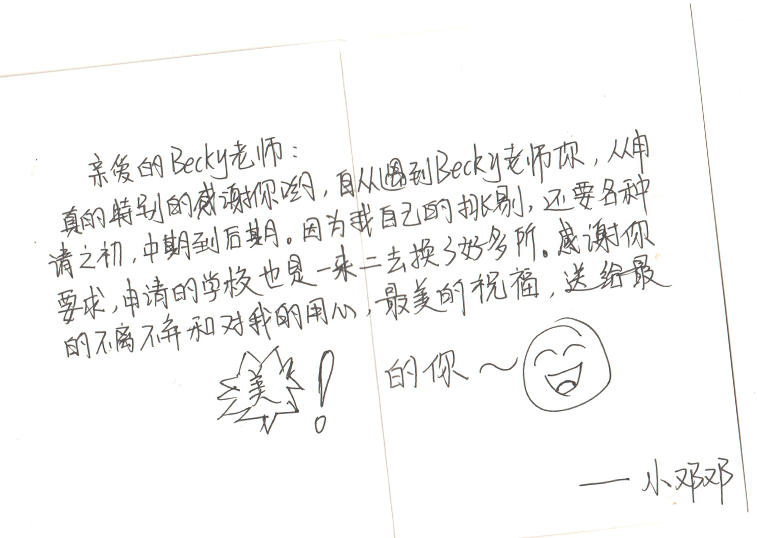 亲爱的Becky老师：
真的特别的感谢你哟，自从遇到Becky老师你，从申
请之初，中期到后期。因为我自己的挑剔，还要各种
要求，申请的学校也是一来二去换了好多所。感谢你
的不离不弃和对我的用心，最美的祝福，送给最
美！的你～
——小邓邓